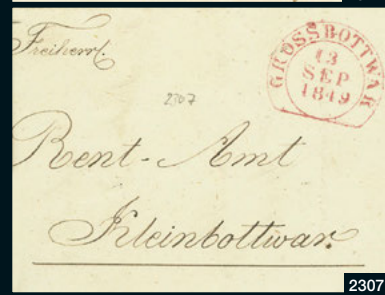 Freiherrl.
GROSSBOTTWAR
13
SEP
1849
2307
Rent-Amt
Kleinbottwar.
2307